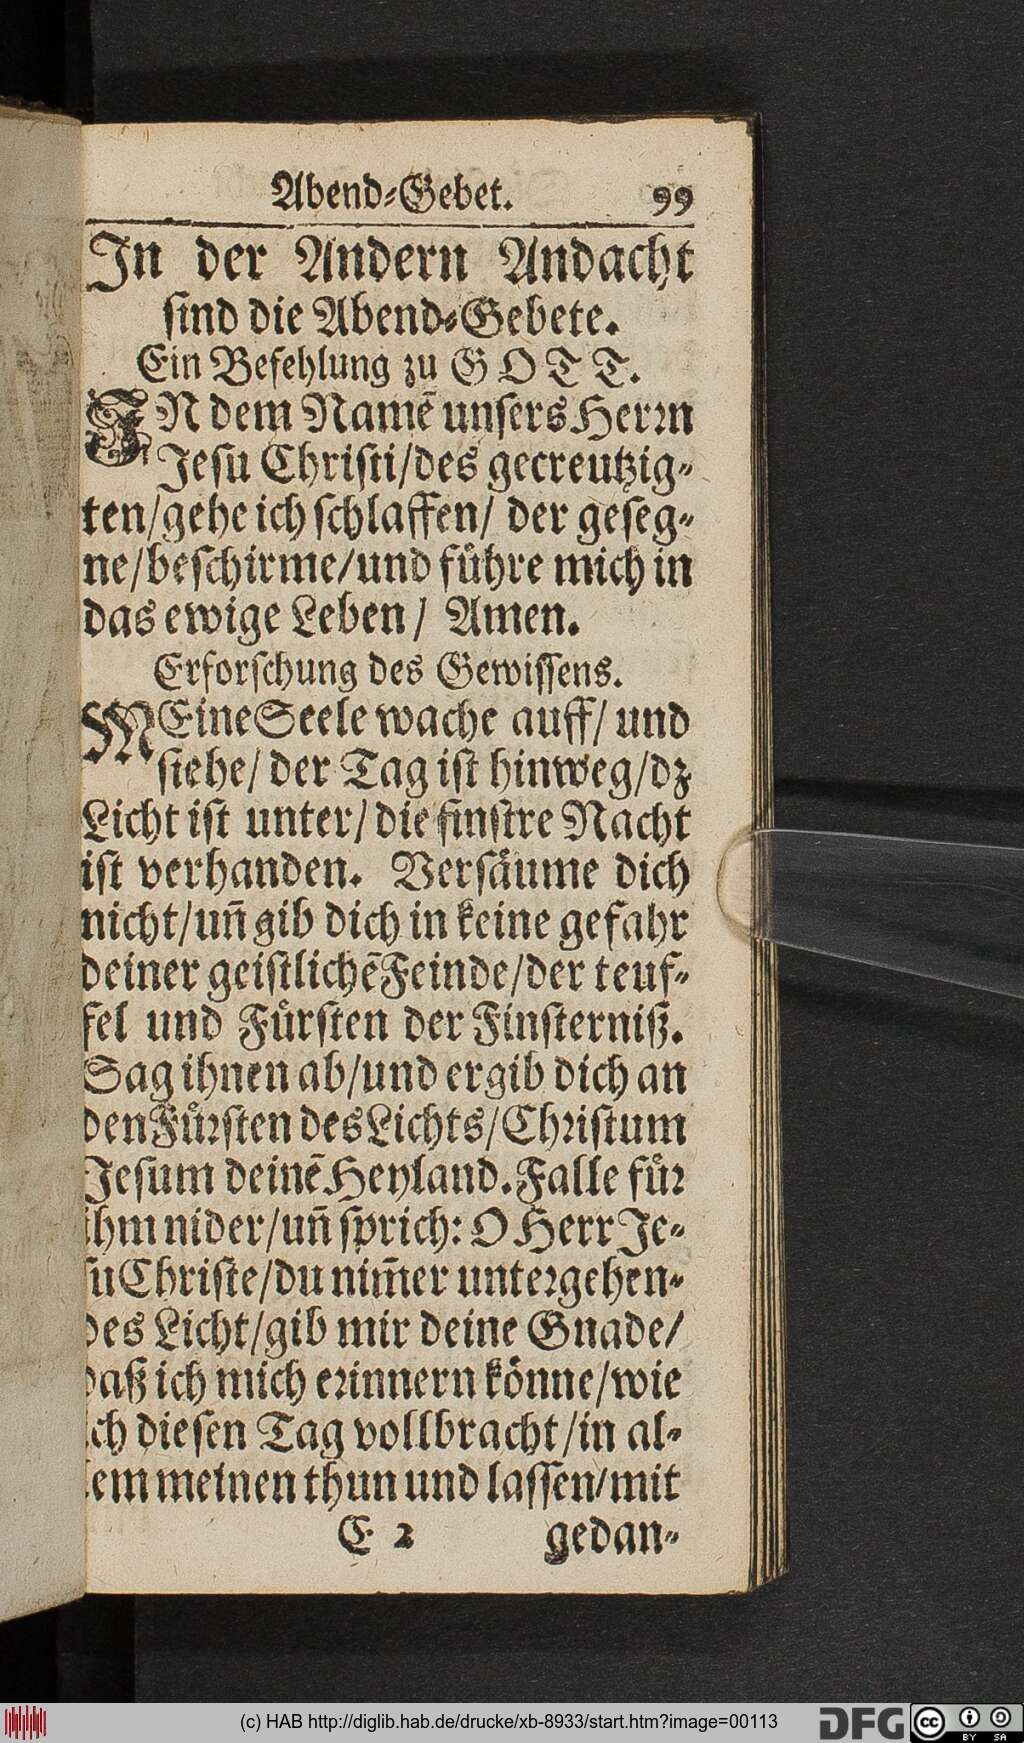 Abend-Gebet. 99
In der Andern Andacht
sind die Abend-Gebete.
Ein Befehlung zu GOTT.
IN dem Namẽ unsers Herrn
Jesu Christi/des gecreutzig-
ten/gehe ich schlaffen/ der geseg-
ne/beschirme/und fuͤhre mich in
das ewige Leben/ Amen.
Erforschung des Gewissens.
MEine Seele wache auff/ und
siehe/ der Tag ist hinweg/dz
Licht ist unter/die finstre Nacht
ist verhanden. Versaͤume dich
nicht/uñ gib dich in keine gefahr
deiner geistlichẽ Feinde/der teuf-
fel und Fuͤrsten der Finsterniß.
Sag ihnen ab/und ergib dich an
den Fuͤrsten des Lichts/Christum
Jesum deinẽ Heyland. Falle fuͤr
ihm nider/uñ sprich: O Herr Je-
su Christe/du nim̃er untergehen-
des Licht/gib mir deine Gnade/
daß ich mich erinnern koͤnne/wie
ich diesen Tag vollbracht/in al-
lem meinen thun und lassen/mit
E 2 gedan-
(c) HAB http://diglib.hab.de/drucke/xb-8933/start.htm?image=00113
DFG cc BY SA